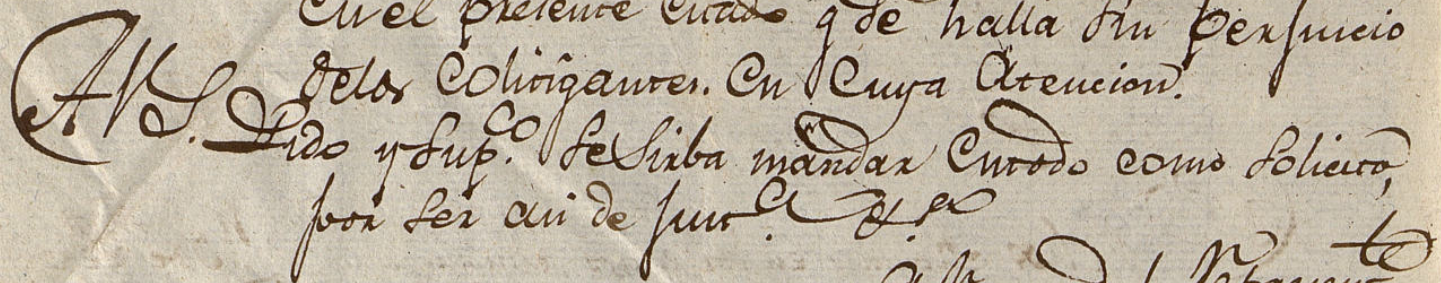 en el presente estado q se halla sin perjuicio
delos Colitigantes. En Cuya Atencion.
AVS. Pido y Sup.co se Sirba mandar Entodo como Solicito,
por ser asi de just.a &.a